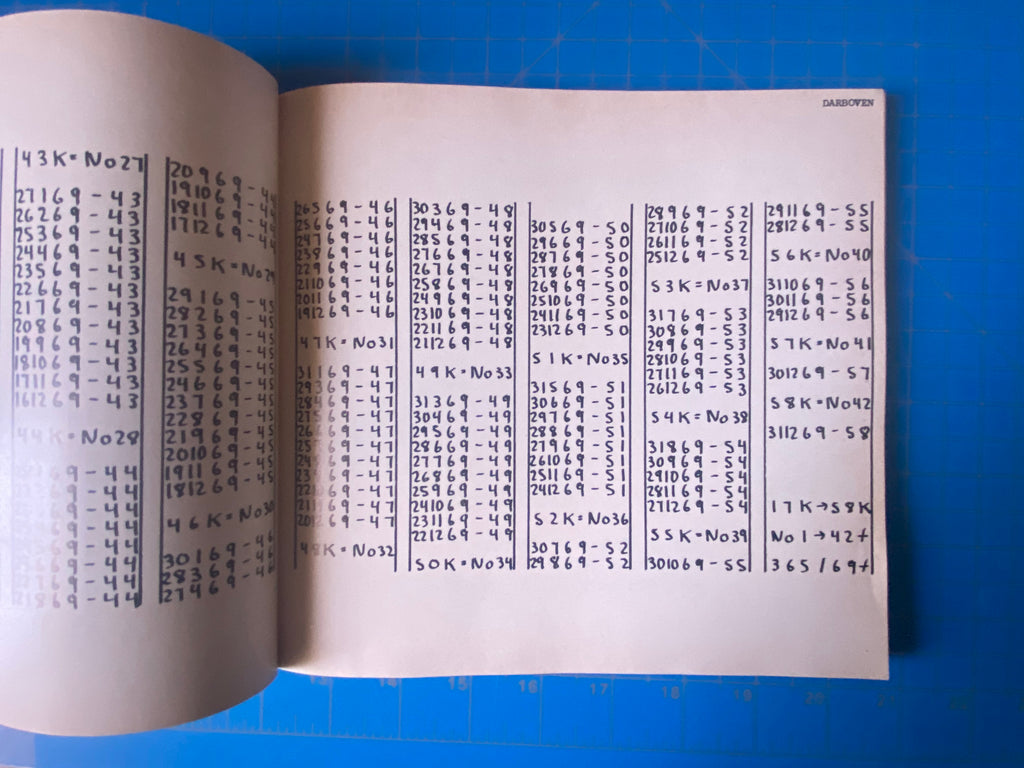 DARBOVEN
43K=No27
27169-43
26269-43
25369-43
24469-43
23569-43
22669-43
21769-43
20869-43
19969-43
181069-43
171169-43
161269-43
44K=No28
-44
-44
-44
-44
-44
-44
-44
21869-44
20969-44
191069-44
181169-44
171269-44
45K=No29
29169-45
28269-45
27369-45
26469-45
25569-45
24669-45
23769-45
22869-45
21969-45
201069-45
191169-45
181269-45
46K=No30
30169-46
28369-46
27469
26569-46
25669-46
24769-46
23869-46
22969-46
211069-46
201169-46
191269-46
47K=No31
31169-47
29369-47
28469-47
27569-47
26669-47
25769-47
24869-47
23969-47
221069-47
211169-47
201269-47
48K=No32
30369-48
29469-48
28569-48
27669-48
26769-48
25869-48
24969-48
231069-48
221169-48
211269-48
49K=No33
31369-49
30469-49
29569-49
28669-49
27769-49
26869-49
25969-49
241069-49
231169-49
221269-49
50K=No34
30569-50
29669-50
28769-50
27869-50
26969-50
251069-50
241169-50
231269-50
51K=No35
31569-51
30669-51
29769-51
28869-51
27969-51
261069-51
251169-51
241269-51
52K=No36
30769-52
29869-52
28969-52
271069-52
261169-52
251269-52
53K=No37
31769-53
30869-53
29969-53
281069-53
271169-53
261269-53
54K=No38
31869-54
30969-54
291069-54
281169-54
271269-54
55K=No39
301069-55
291169-55
281269-55
56K=No40
311069-56
301169-56
291269-56
57K=No41
301269-57
58K=No42
311269-58
17K→58K
No1→42+
365/69+
13 14 15 16 17 18 19 20 21 22